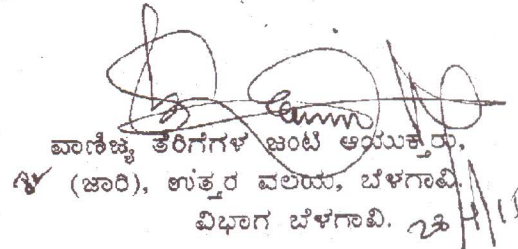 ವಾಣಿಜ್ಯ ತೆರಿಗೆಗಳ ಜಂಟಿ ಆಯುಕ್ತರು,
(ಜಾರಿ), ಉತ್ತರ ವಲಯ, ಬೆಳಗಾವಿ.
ವಿಭಾಗ ಬೆಳಗಾವಿ.